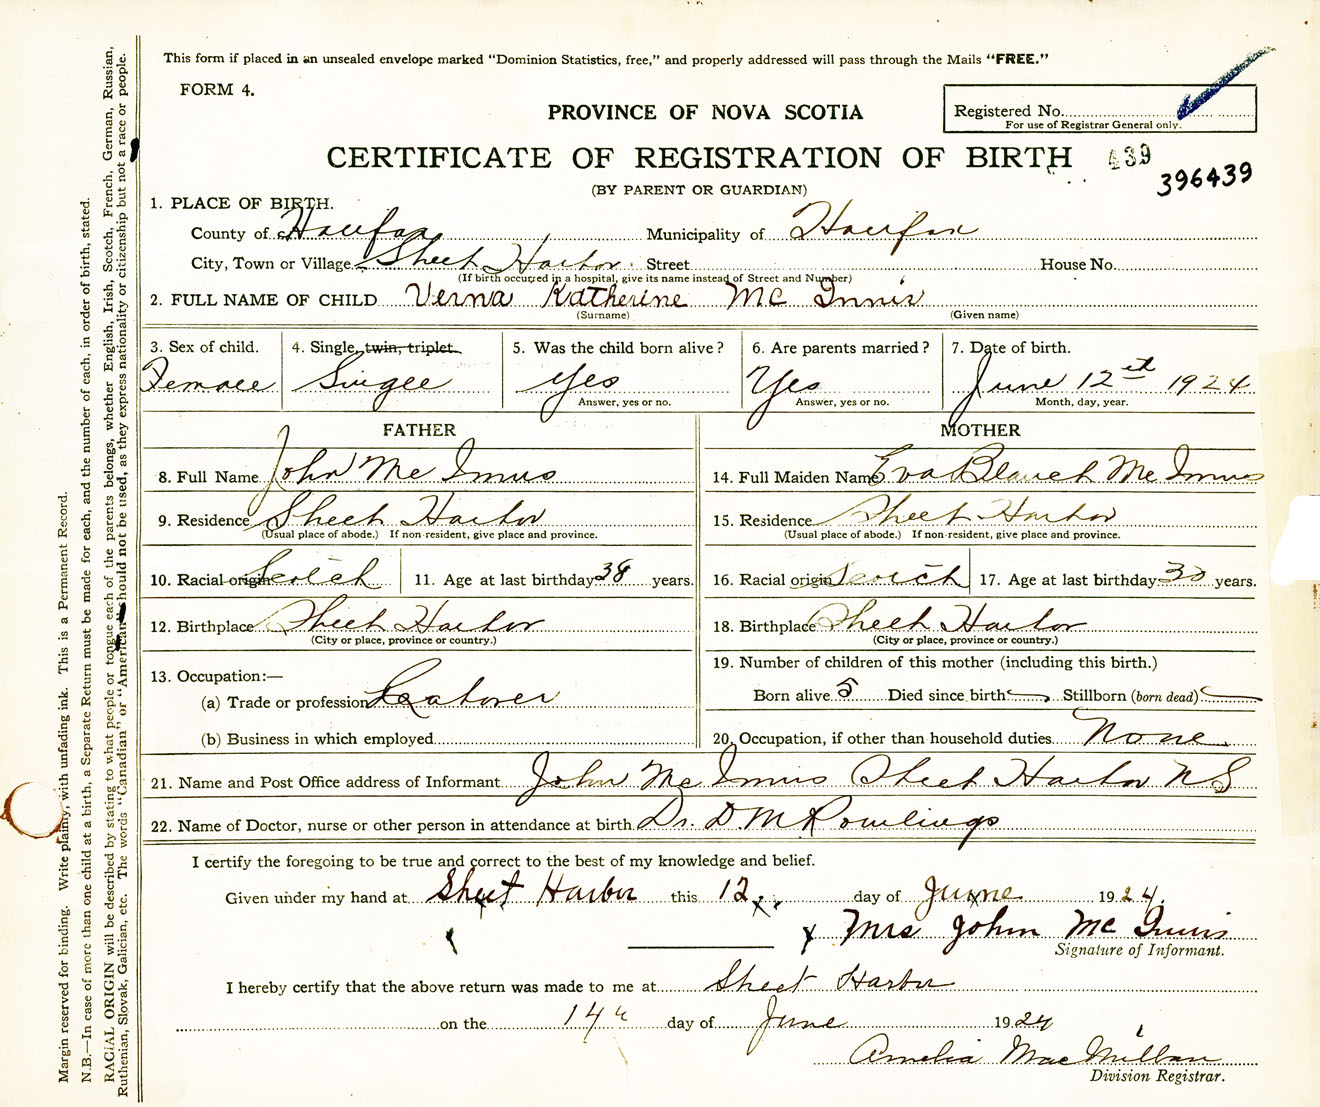 This form if placed in an unsealed envelope marked "Dominion Statistics, free," and properly addressed will pass through the Mails "FREE."
FORM 4.
PROVINCE OF NOVA SCOTIA
Registered No.
For use of Registrar General only.
CERTIFICATE OF REGISTRATION OF BIRTH 439
396439
(BY PARENT OR GUARDIAN)
1. PLACE OF BIRTH.
County of Halifax Municipality of Halifax
City, Town or Village Sheet Harbor Street House No.
(If birth occurred in a hospital, give its name instead of Street and Number)
2. FULL NAME OF CHILD Verna Katherine Mc Innis
(Surname) (Given name)
3. Sex of child. 4. Single, twin, triplet. 5. Was the child born alive? 6. Are parents married? 7. Date of birth.
Female Single Yes Yes June 12th 1924
Answer, yes or no. Answer, yes or no. Month, day, year.
FATHER MOTHER
8. Full Name John Mc Innis 14. Full Maiden Name Eva Blanch Mc Innis
9. Residence Sheet Harbor 15. Residence Sheet Harbor
(Usual place of abode.) If non-resident, give place and province. (Usual place of abode.) If non-resident, give place and province.
10. Racial origin Scotch 11. Age at last birthday 38 years. 16. Racial origin Scotch 17. Age at last birthday 30 years.
12. Birthplace Sheet Harbor 18. Birthplace Sheet Harbor
(City or place, province or country.) (City or place, province or country.)
13. Occupation:— 19. Number of children of this mother (including this birth.)
(a) Trade or profession Labover Born alive 5 Died since birth Stillborn (born dead)
(b) Business in which employed 20. Occupation, if other than household duties None
21. Name and Post Office address of Informant John Mc Innis Sheet Harbor N S
22. Name of Doctor, nurse or other person in attendance at birth Dr. D M Rowlings
I certify the foregoing to be true and correct to the best of my knowledge and belief.
Given under my hand at Sheet Harbor this 12 day of June 1924.
Mrs John Mc Innis
Signature of Informant.
I hereby certify that the above return was made to me at Sheet Harbor
on the 14th day of June 1924
Amelia MacMillan
Division Registrar.
Margin reserved for binding. Write plainly, with unfading ink. This is a Permanent Record.
N.B.—In case of more than one child at a birth, a Separate Return must be made for each, and the number of each, in order of birth, stated.
RACIAL ORIGIN will be described by stating to what people or tongue each of the parents belongs, whether English, Irish, Scotch, French, German, Russian,
Ruthenian, Slovak, Galician, etc. The words "Canadian" or "American" should not be used, as they express nationality or citizenship but not a race or people.